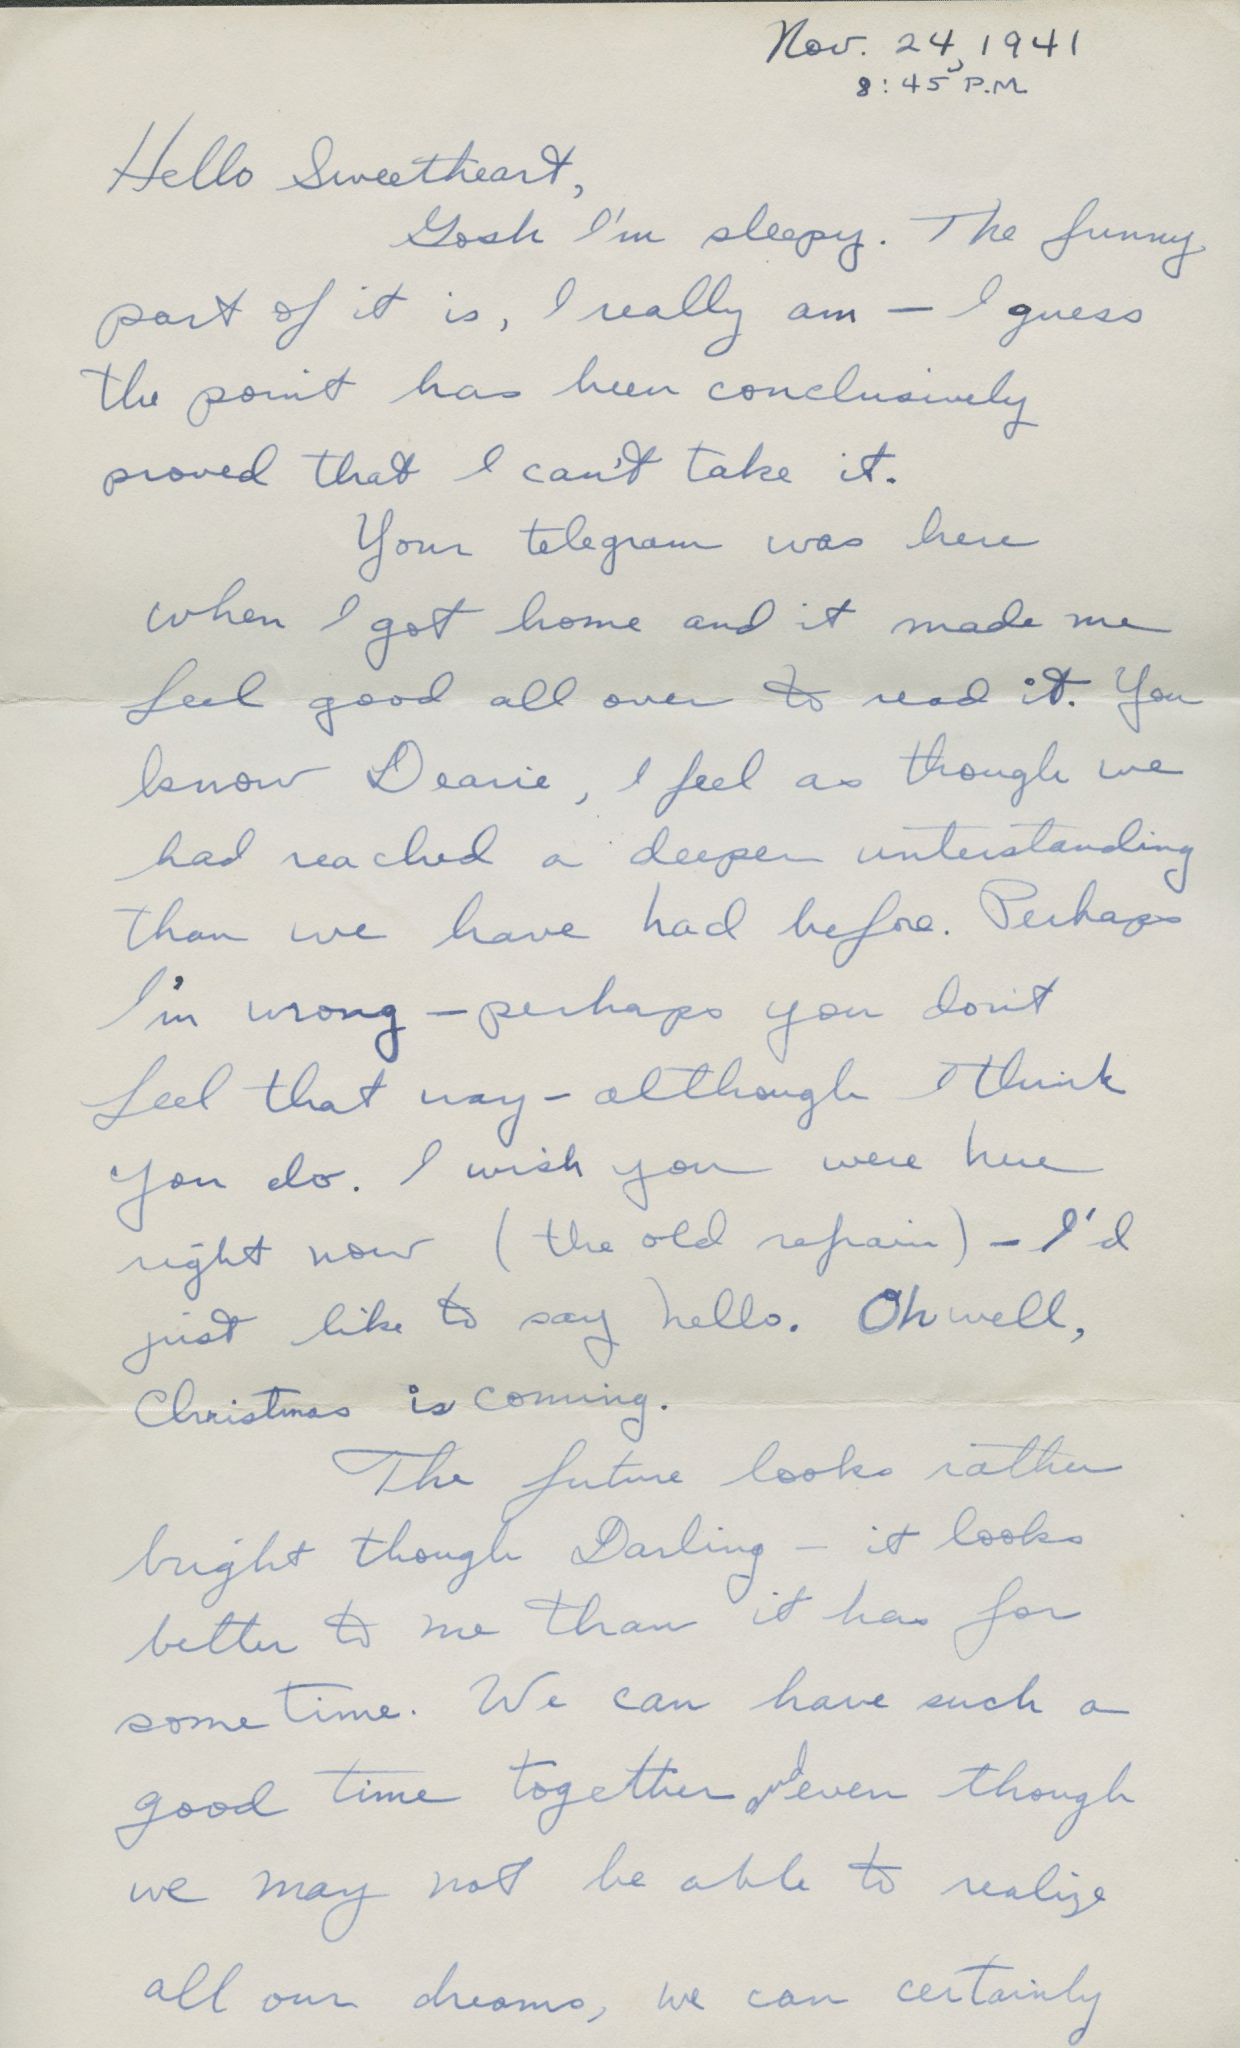 Nov. 24, 1941
8:45 P.M
Hello Sweetheart,
Gosh I'm sleepy. The funny
part of it is, I really am — I guess
the point has been conclusively
proved that I can't take it.
Your telegram was here
when I got home and it made me
feel good all over to read it. You
know Dearie, I feel as though we
had reached a deeper unterstanding
than we have had before. Perhaps
I'm wrong — perhaps you don't
feel that way — although I think
you do. I wish you were here
right now (the old refrain) — I'd
just like to say hello. Oh well,
Christmas is coming.
The future looks rather
bright though Darling — it looks
better to me than it has for
some time. We can have such a
good time together, even though
we may not be able to realize
all our dreams, we can certainly